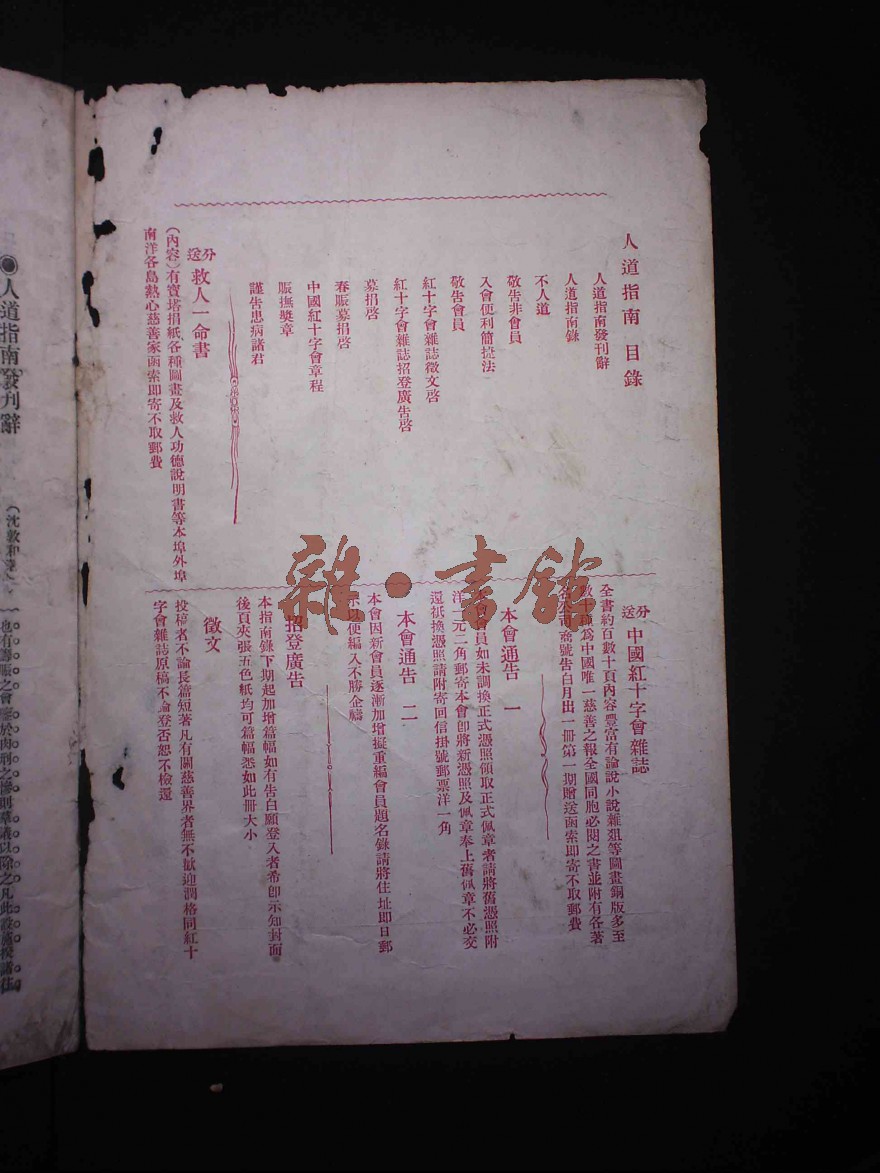 人道指南 目錄
人道指南發刊辭
人道指南錄
不人道
敬告非會員
入會便利簡捷法
敬告會員
紅十字會雜誌徵文啓
紅十字會雜誌招登廣告啓
募捐啓
春賑募捐啓
中國紅十字會章程
賑撫獎章
謹告患病諸君
分送 救人一命書
(內容)有寶塔捐紙各種圖畫及救人功德說明書等本埠外埠
南洋各島熱心慈善家函索即寄不取郵費
分送 中國紅十字會雜誌
全書約百數十頁內容豐富有論說小說雜俎等圖畫銅版多至
數十種爲中國唯一慈善之報全國同胞必閱之書並附有各著
名公司商號告白月出一冊第一期贈送函索即寄不取郵費
本會通告 一
本會會員如未調換正式憑照領取正式佩章者請將舊憑照附
洋一元二角郵寄本會即將新憑照及佩章奉上舊佩章不必交
還祇換憑照請附寄回信掛號郵票洋一角
本會通告 二
本會因新會員逐漸加增擬重編會員題名錄請將住址即日郵
示以便編入不勝企禱
招登廣告
本指南錄下期起加增篇幅如有告白願登入者希即示知封面
後頁夾張五色紙均可篇幅悉如此冊大小
徵文
投稿者不論長篇短著凡有關慈善界者無不歡迎潤格同紅十
字會雜誌原稿不論登否恕不檢還
雜·書館
●人道指南發刊辭
(沈敦和